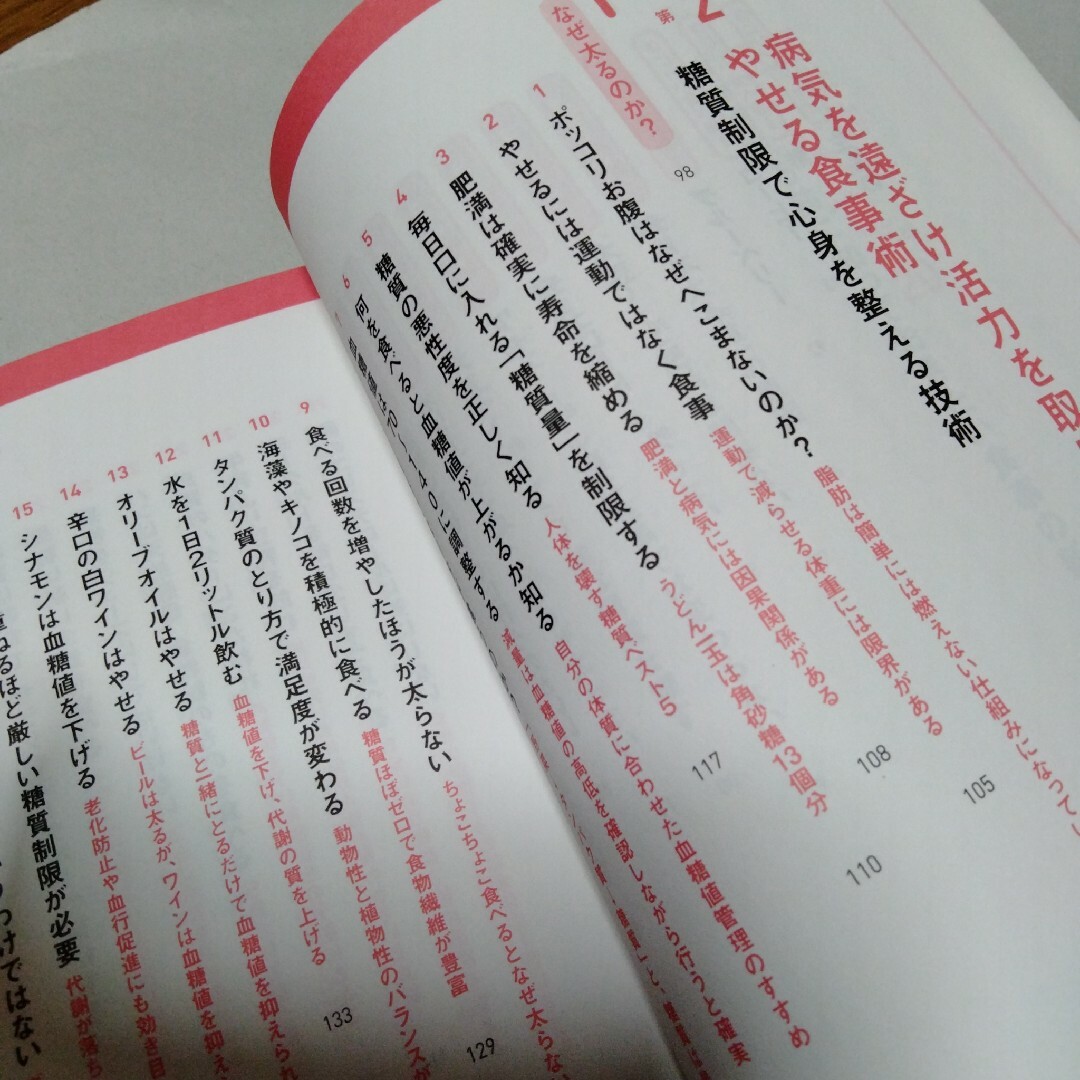 第
2
病気を遠ざけ活力を取
やせる食事術
糖質制限で心身を整える技術
なぜ太るのか?
98
1 ポッコリお腹はなぜへこまないのか?
脂肪は簡単には燃えない仕組みになって
105
2 やせるには運動ではなく食事
運動で減らせる体重には限界がある
108
3 肥満は確実に寿命を縮める
肥満と病気には因果関係がある
110
4 毎日口に入れる「糖質量」を制限する
うどん一玉は角砂糖13個分
5 糖質の悪性度を正しく知る
人体を壊す糖質ベスト5
117
6 何を食べると血糖値が上がるか知る
自分の体質に合わせた血糖値管理のすすめ
血糖値は70〜140に調整する
減量は血糖値の高低を確認しながら行うと確実
9 食べる回数を増やしたほうが太らない
ちょこちょこ食べるとなぜ太らない
10 海藻やキノコを積極的に食べる
糖質ほぼゼロで食物繊維が豊富
129
11 タンパク質のとり方で満足度が変わる
動物性と植物性のバランスが
12 水を1日2リットル飲む
血糖値を下げ、代謝の質を上げる
133
13 オリーブオイルはやせる
糖質と一緒にとるだけで血糖値を抑えられ
14 辛口の白ワインはやせる
ビールは太るが、ワインは血糖値を抑え
15 シナモンは血糖値を下げる
老化防止や血行促進にも効き目
重ねるほど厳しい糖質制限が必要
代謝が落ち
わけではない